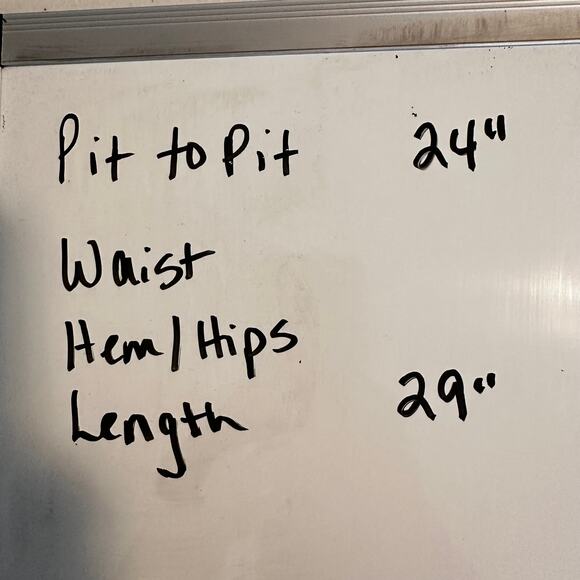 Pit to Pit 24"
Waist
Hem/Hips
Length 29"